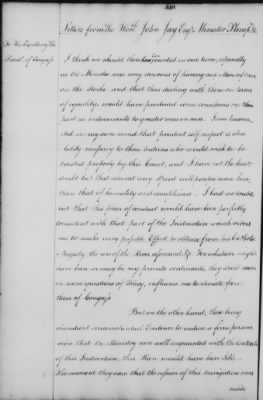 Letters from the Honble John Jay Esqr Minister Plenipo. &c
To His Excellency The
Presidt of Congress
I think we should then have succeeded in our views, especially
as the Minister was very desirous of having our Men of War
on the Stocks, and that thus dealing with them on terms
of equality, would have produced some concessions on their
part as inducements to greater ones on ours. I am persua-
ded in my own mind that prudent self respect is abso-
lutely necessary to those nations who would wish to be
treated properly by this Court, and I have not the least
doubt but that almost any spirit will render more here,
than that of humility and compliance. I had no doubt
but that this plan of conduct would have been perfectly
consistent with that part of the Instruction which orders
me to make my possible Effort to obtain from his Catholic
Majesty the use of the River aforesaid &c. For whatever might
have been or may be my private sentiments, they shall never
in mere questions of Policy, influence me to deviate from
those of Congress
But on the other hand, there being
abundant circumstantial Evidence to induce a firm persua-
sion that the Ministry were well acquainted with the contents
of this Instruction, this Plan would have been Idle.
The moment they saw that the cession of this Navigation was
made